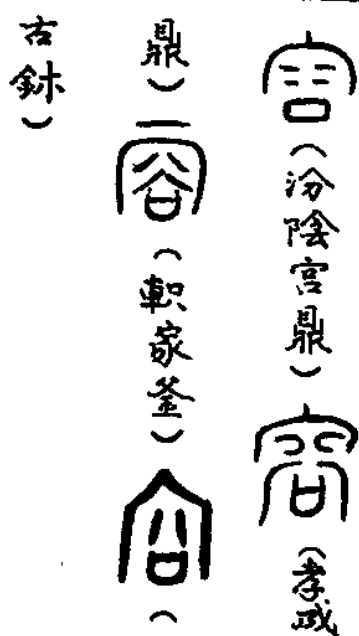 容（汾陰宮鼎）容（孝成
鼎）容（軹家釜）容（
古鉨）